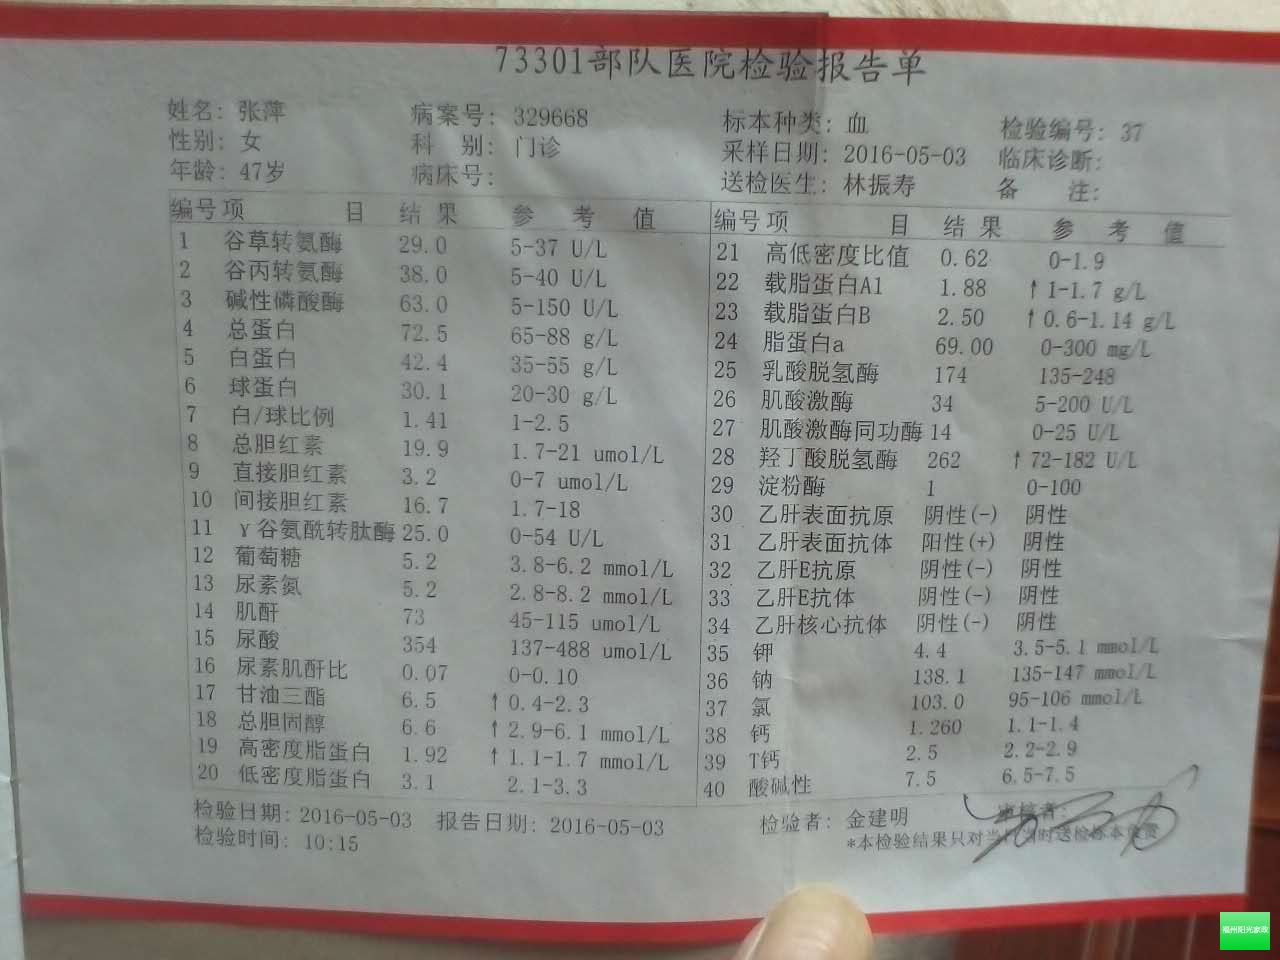 73301部队医院检验报告单
姓名: 张萍 病案号: 329668 标本种类: 血 检验编号: 37
性别: 女 科 别: 门诊 采样日期: 2016-05-03 临床诊断:
年龄: 47岁 病床号: 送检医生: 林振寿 备 注:
编号 项 目 结 果 参 考 值
1 谷草转氨酶 29.0 5-37 U/L
2 谷丙转氨酶 38.0 5-40 U/L
3 碱性磷酸酶 63.0 5-150 U/L
4 总蛋白 72.5 65-88 g/L
5 白蛋白 42.4 35-55 g/L
6 球蛋白 30.1 20-30 g/L
7 白/球比例 1.41 1-2.5
8 总胆红素 19.9 1.7-21 umol/L
9 直接胆红素 3.2 0-7 umol/L
10 间接胆红素 16.7 1.7-18
11 γ谷氨酰转肽酶 25.0 0-54 U/L
12 葡萄糖 5.2 3.8-6.2 mmol/L
13 尿素氮 5.2 2.8-8.2 mmol/L
14 肌酐 73 45-115 umol/L
15 尿酸 354 137-488 umol/L
16 尿素肌酐比 0.07 0-0.10
17 甘油三酯 6.5 ↑0.4-2.3
18 总胆固醇 6.6 ↑2.9-6.1 mmol/L
19 高密度脂蛋白 1.92 ↑1.1-1.7 mmol/L
20 低密度脂蛋白 3.1 2.1-3.3
编号 项 目 结 果 参 考 值
21 高低密度比值 0.62 0-1.9
22 载脂蛋白A1 1.88 ↑1-1.7 g/L
23 载脂蛋白B 2.50 ↑0.6-1.14 g/L
24 脂蛋白a 69.00 0-300 mg/L
25 乳酸脱氢酶 174 135-248
26 肌酸激酶 34 5-200 U/L
27 肌酸激酶同功酶 14 0-25 U/L
28 羟丁酸脱氢酶 262 ↑72-182 U/L
29 淀粉酶 1 0-100
30 乙肝表面抗原 阴性(-) 阴性
31 乙肝表面抗体 阳性(+) 阴性
32 乙肝E抗原 阴性(-) 阴性
33 乙肝E抗体 阴性(-) 阴性
34 乙肝核心抗体 阴性(-) 阴性
35 钾 4.4 3.5-5.1 mmol/L
36 钠 138.1 135-147 mmol/L
37 氯 103.0 95-106 mmol/L
38 钙 1.260 1.1-1.4
39 T钙 2.5 2.2-2.9
40 酸碱性 7.5 6.5-7.5
检验日期: 2016-05-03 报告日期: 2016-05-03 检验者: 金建明 审核者:
检验时间: 10:15 *本检验结果只对当时送检标本负责
福州阳光家政